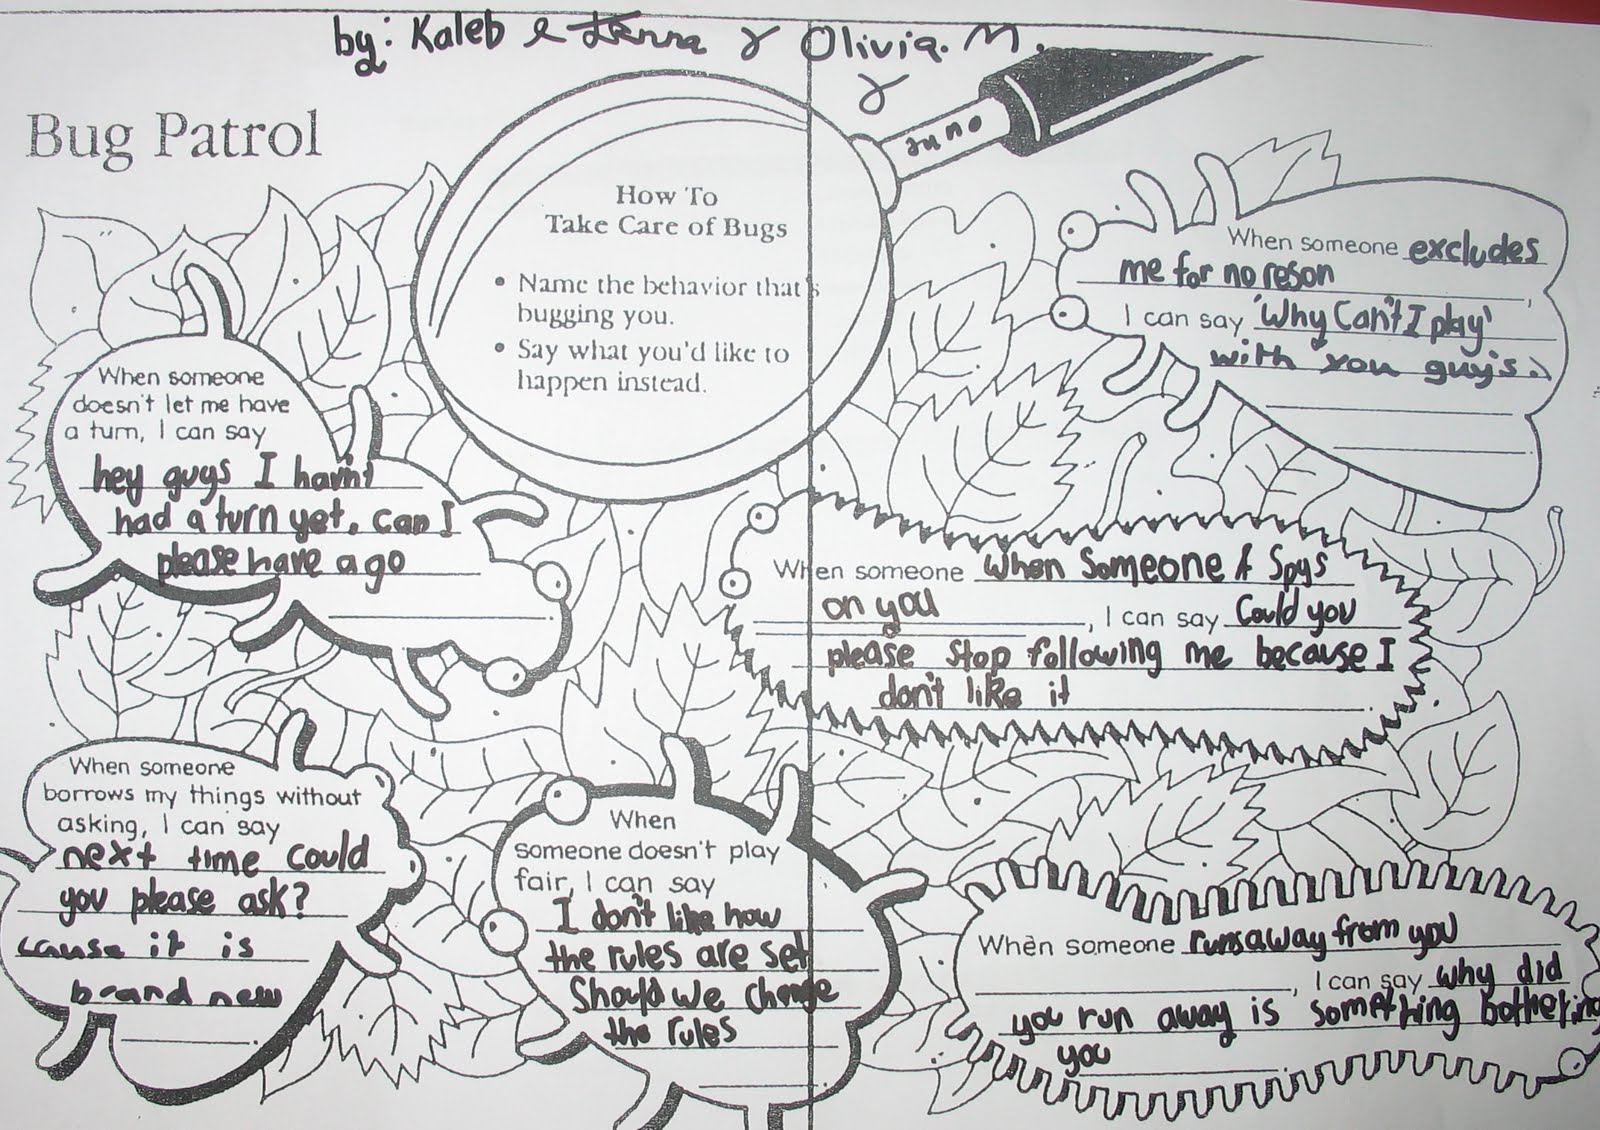 by: Kaleb & Olivia. M.
Juno
Bug Patrol
How To
Take Care of Bugs
• Name the behavior that's
bugging you.
• Say what you'd like to
happen instead.
When someone excludes
me for no reson,
I can say 'Why Can't I play'
with you guy's.
When someone
doesn't let me have
a turn, I can say
hey guys I havn't
had a turn yet. Can I
please have a go
When someone When Someone A Spys
on you, I can say Could you
please stop following me because I
don't like it.
When someone
borrows my things without
asking, I can say
next time could
you please ask?
cause it is
brand new
When
someone doesn't play
fair, I can say
I don't like how
the rules are set
Should we change
the rules
When someone runs away from you
, I can say why did
you run away is something bothering
you.